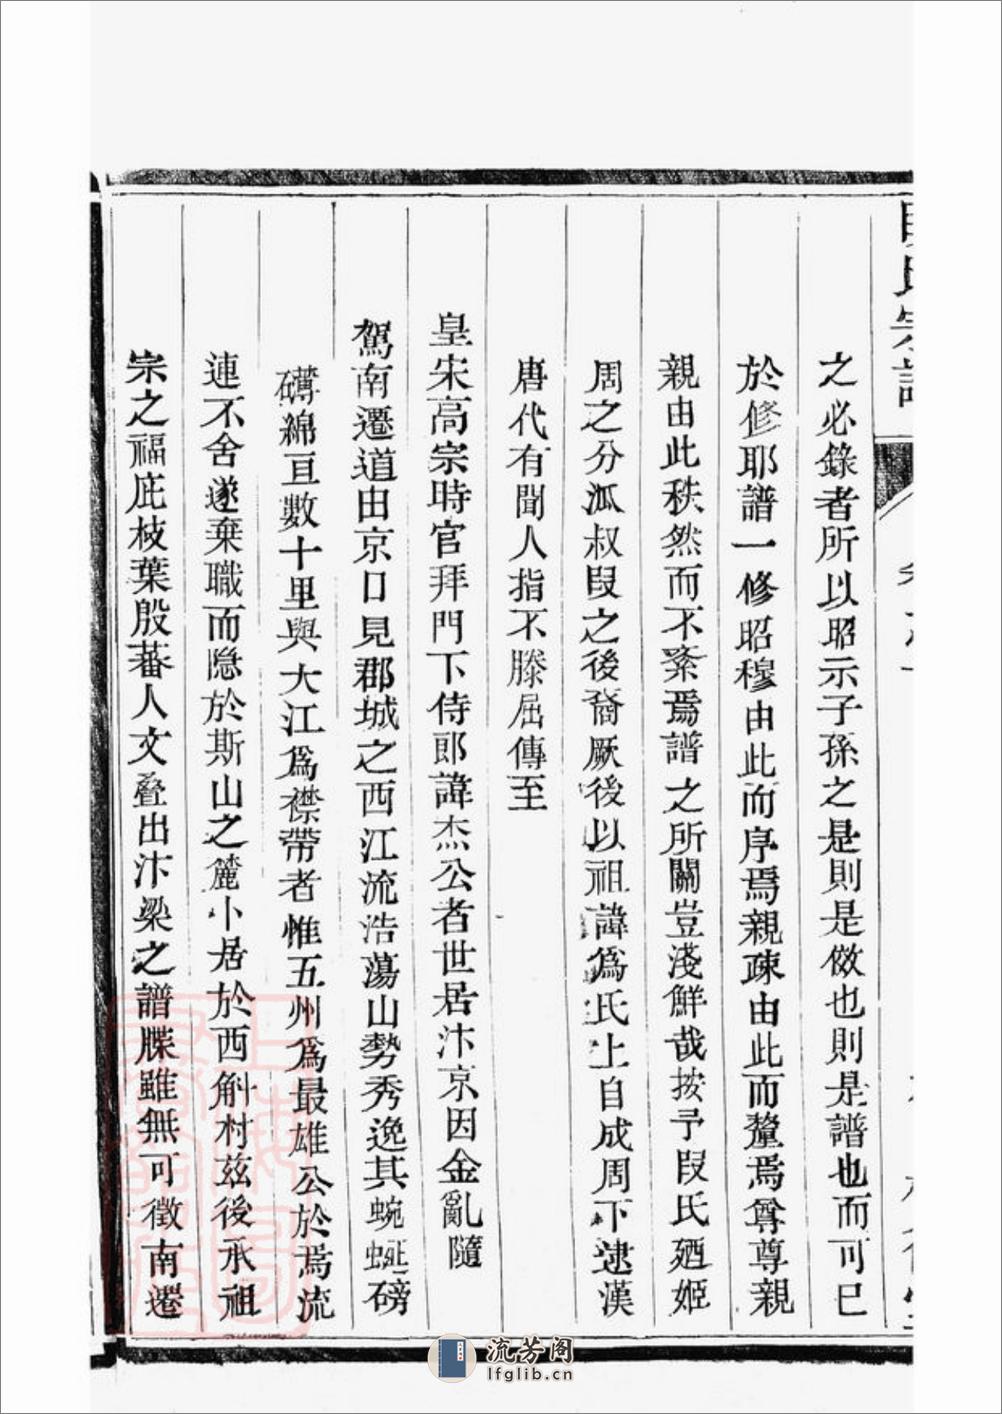 之必錄者所以昭示子孫之是則是傚也則是譜也而可已
於修耶譜一修昭穆由此而序焉親疎由此而釐焉尊尊親
親由此秩然而不紊焉譜之所關豈淺鮮哉按予叚氏廼姬
周之分派叔叚之後裔厥後以祖諱爲氏上自成周下逮漢
唐代有聞人指不勝屈傳至
皇宋高宗時官拜門下侍郎諱杰公者世居汴京因金亂隨
駕南遷道由京口見郡城之西江流浩蕩山勢秀逸其蜿蜒磅
礴綿亘數十里與大江爲襟帶者惟五州爲最雄公於焉流
連不舍遂棄職而隱於斯山之麓卜居於西斛村茲後承祖
宗之福庇枝葉殷蕃人文叠出汴梁之譜牒雖無可徵南遷
流芳阁
lfglib.cn